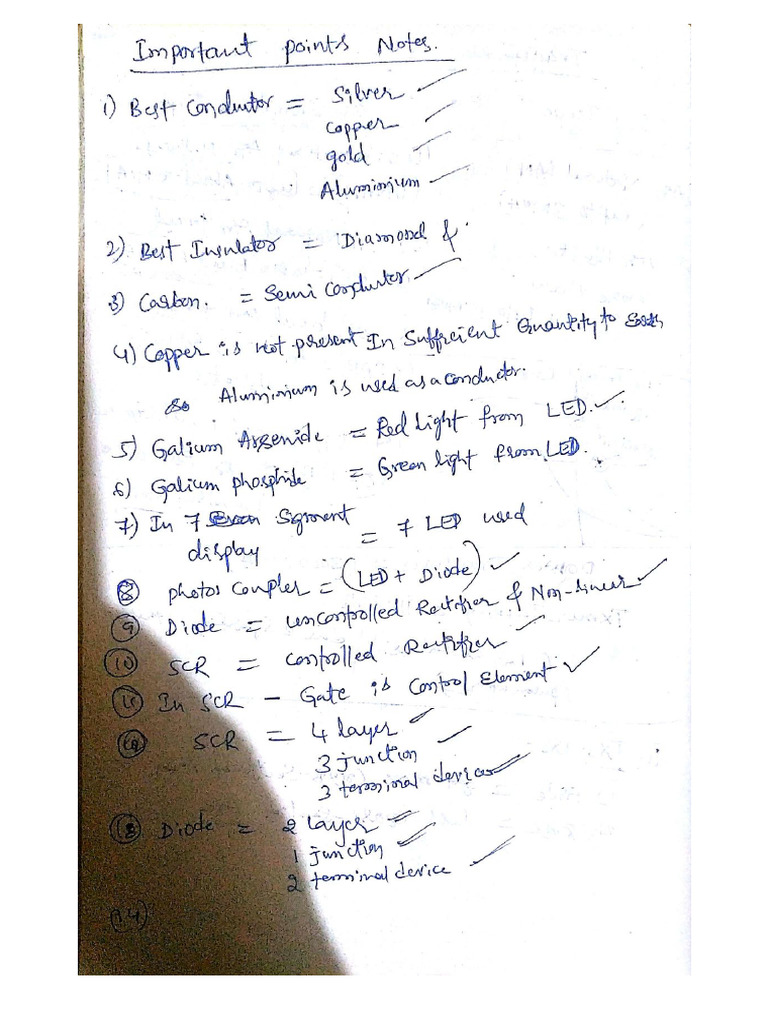 Important points Notes.
1) Best Conductor = Silver
copper
gold
Aluminium
2) Best Insulator = Diamond &
3) Carbon. = Semi Conductor
4) Copper is not present In Sufficient Quantity to
So Aluminium is used as a conductor.
5) Galium Arsenide = Red light from LED.
6) Galium phosphide = Green light from LED.
7) In 7 Sigment
display = 7 LED used
8 photos Coupler = (LED + Diode)
9 Diode = uncontrolled Rectifier & Non-linear
10 SCR = controlled Rectifier
11 In SCR - Gate is Control Element
12 SCR = 4 layer
3 junction
3 terminal device
13 Diode = 2 layer
1 junction
2 terminal device
14)